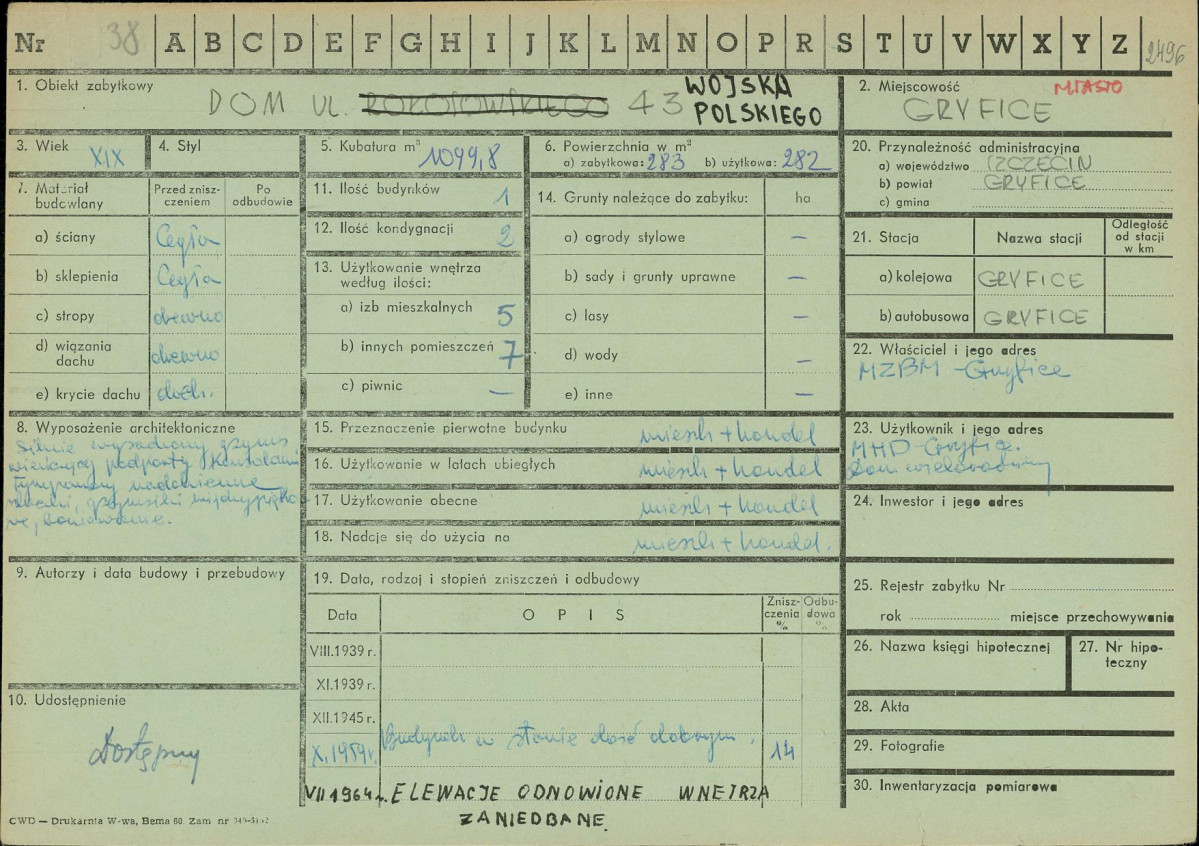 Nr 38 A B C D E F G H I J K L M N O P R S T U V W X Y Z 2496
1. Obiekt zabytkowy
DOM UL. ROKOSOWSKIEGO 43 WOJSKA
POLSKIEGO
2. Miejscowość MIASTO
GRYFICE
3. Wiek XIX
4. Styl
5. Kubatura m³ 1099,8
6. Powierzchnia w m²
a) zabytkowa: 283 b) użytkowa: 282
20. Przynależność administracyjna
a) województwo SZCZECIN
b) powiat GRYFICE
c) gmina
7. Materiał budowlany
Przed zniszczeniem
Po odbudowie
a) ściany Cegła
b) sklepienia Cegła
c) stropy drewno
d) wiązania dachu drewno
e) krycie dachu dach.
11. Ilość budynków 1
12. Ilość kondygnacji 2
13. Użytkowanie wnętrza
według ilości:
a) izb mieszkalnych 5
b) innych pomieszczeń 7
c) piwnic —
14. Grunty należące do zabytku: ha
a) ogrody stylowe —
b) sady i grunty uprawne —
c) lasy —
d) wody —
e) inne —
21. Stacja
Nazwa stacji
Odległość
od stacji
w km
a) kolejowa GRYFICE
b) autobusowa GRYFICE
22. Właściciel i jego adres
MZBM - Gryfice
8. Wyposażenie architektoniczne
Silnie wysadzony gzyms
wieńczący podparty konsolami
gzymsiki międzypiętro
we, boniowanie.
15. Przeznaczenie pierwotne budynku mieszk + handel
16. Użytkowanie w latach ubiegłych mieszk + handel
17. Użytkowanie obecne mieszk + handel
18. Nadaje się do użycia na mieszk + handel.
23. Użytkownik i jego adres
MHD - Gryfice.
Dom wielorodzinny
24. Inwestor i jego adres
9. Autorzy i data budowy i przebudowy
19. Data, rodzaj i stopień zniszczeń i odbudowy
Data
OPIS
Zniszczenia %
Odbudowa %
VIII.1939 r.
XI.1939 r.
XII.1945 r.
X.1959r. Budynek w stanie dość dobrym. 14
VII 1964 r. ELEWACJE ODNOWIONE WNĘTRZA
ZANIEDBANE.
25. Rejestr zabytku Nr
rok miejsce przechowywania
26. Nazwa księgi hipotecznej
27. Nr hipoteczny
28. Akta
29. Fotografie
30. Inwentaryzacja pomiarowa
10. Udostępnienie
Dostępny
CWD — Drukarnia W-wa, Bema 60. Zam nr